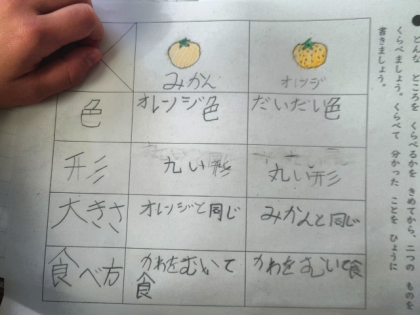 どんな ところを くらべるかを きめてから、二つの ものを
くらべましょう。くらべて 分かった ことを ひょうに
書きましょう。
みかん
オレンジ
色
オレンジ色
だいだい色
形
丸い形
丸い形
大きさ
オレンジと同じ
みかんと同じ
食べ方
かわをむいて
食
かわをむいて食